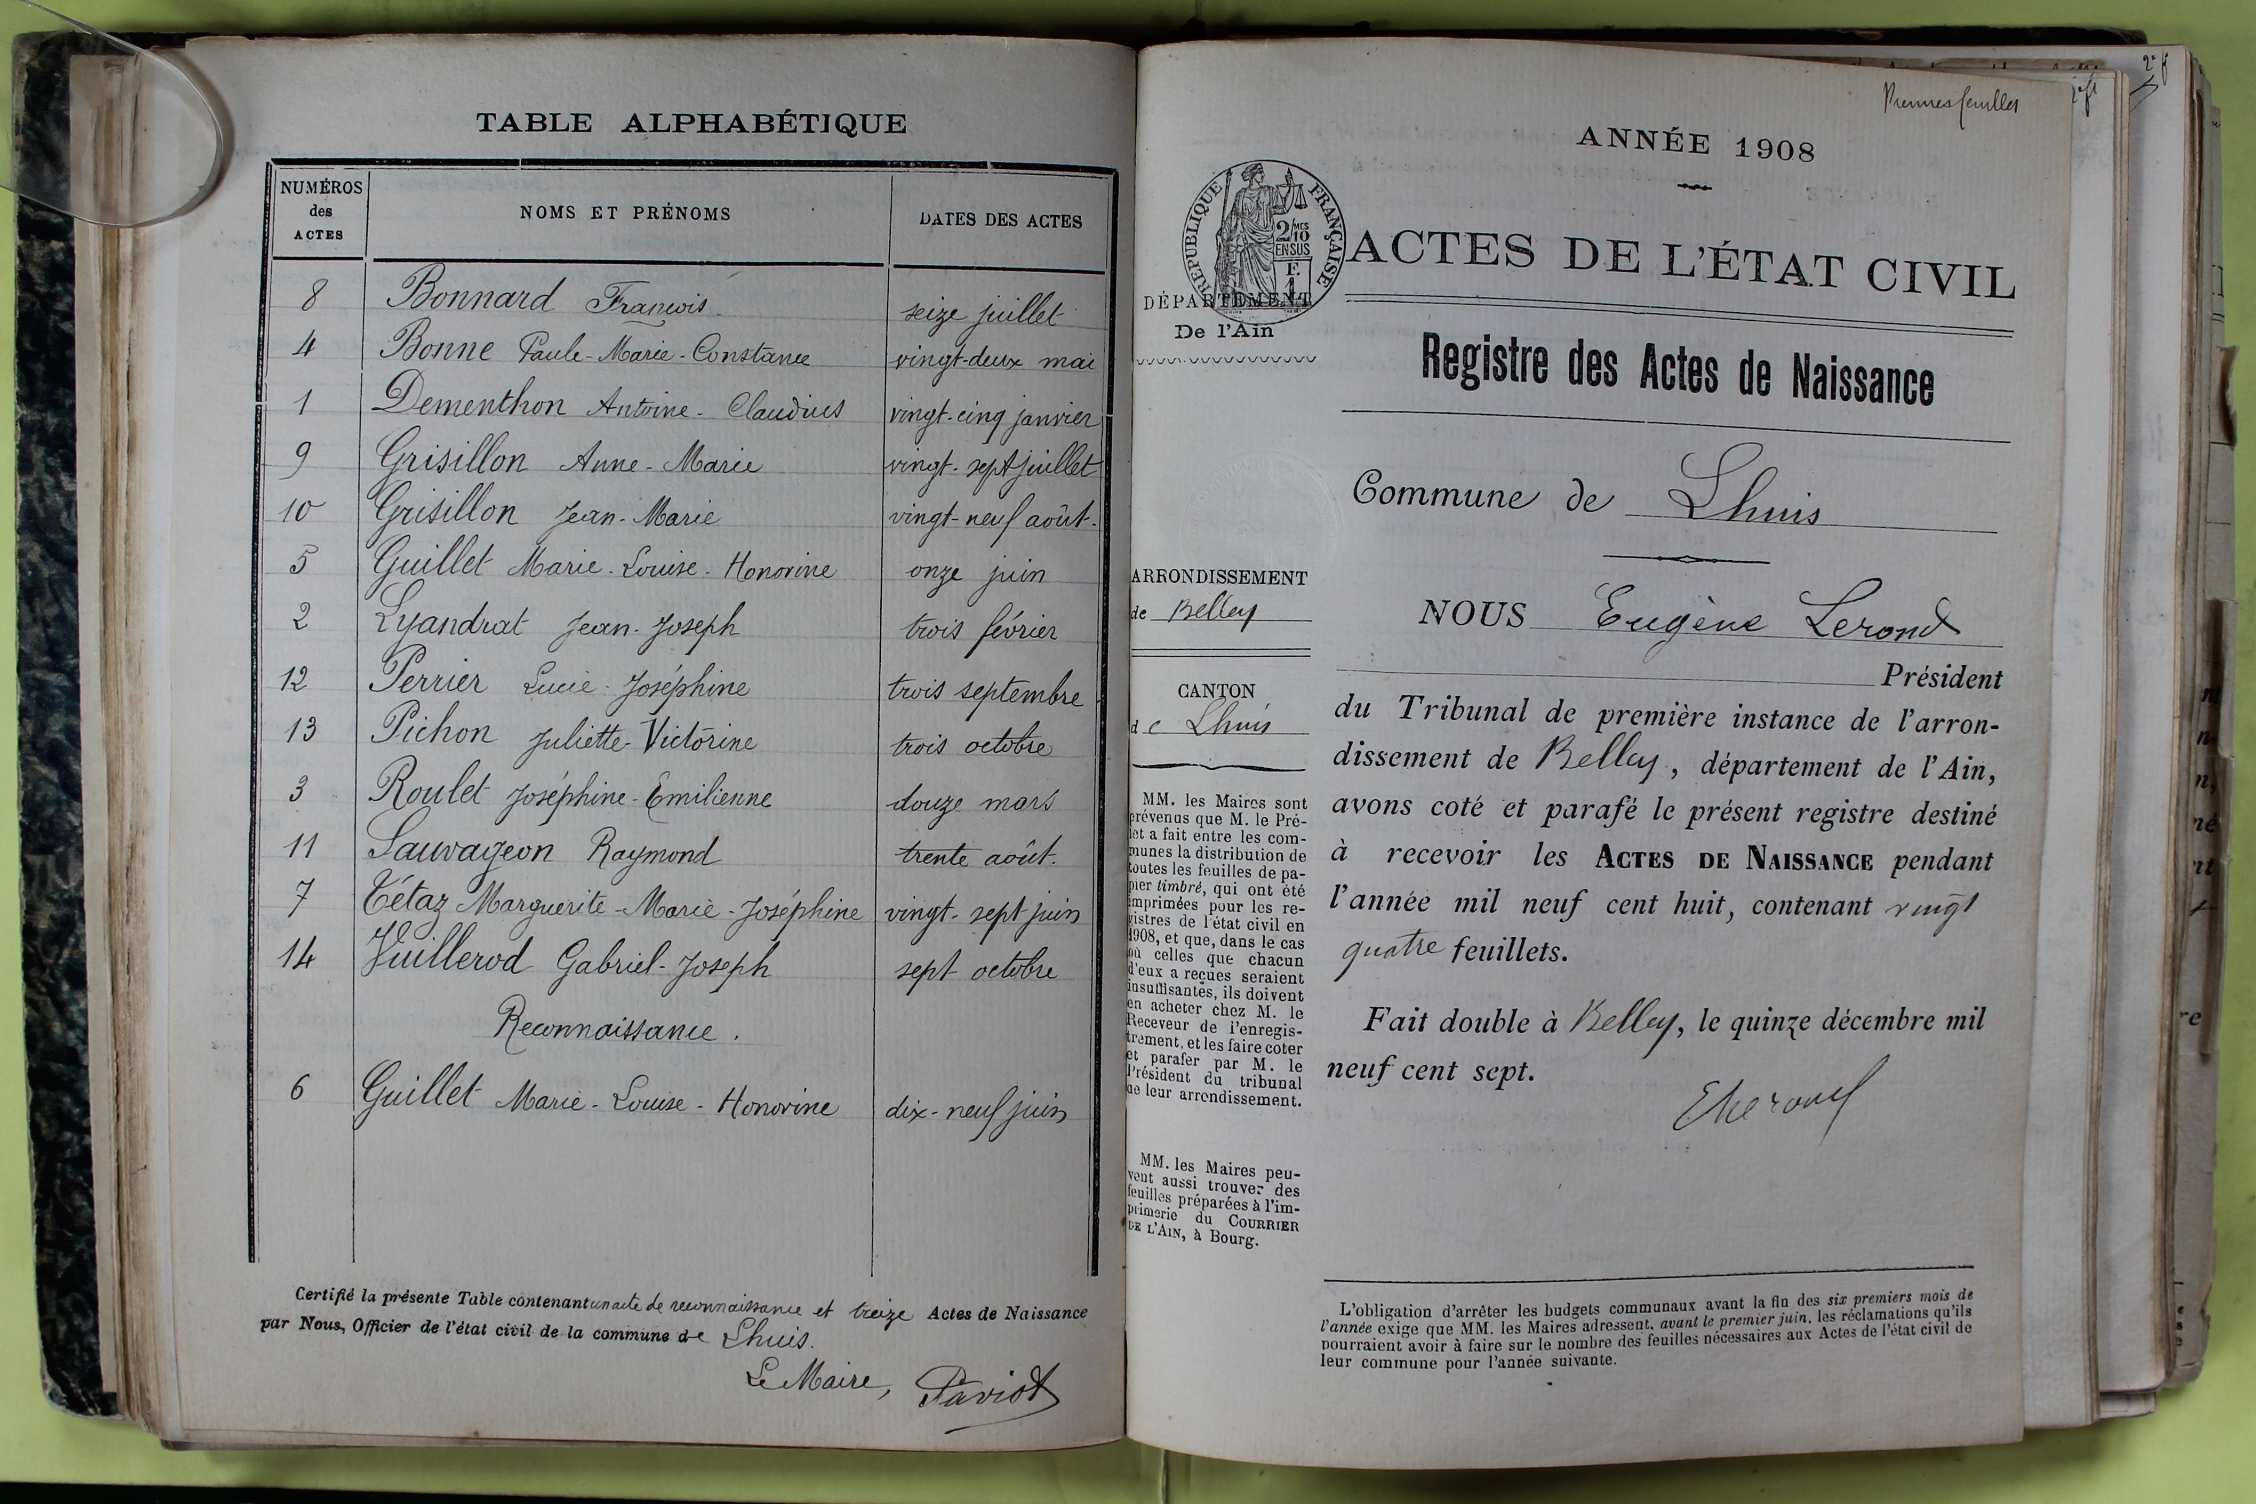 TABLE ALPHABÉTIQUE
NUMÉROS des ACTES NOMS ET PRÉNOMS DATES DES ACTES
8 Bonnard François seize juillet
4 Bonne Paule-Marie-Constance vingt-deux mai
1 Dementhon Antoine-Claudius vingt-cinq janvier
9 Grisillon Anne-Marie vingt-sept juillet
10 Grisillon Jean-Marie vingt-neuf août.
5 Guillet Marie-Louise-Honorine onze juin
2 Lyandrat Jean-Joseph trois février
12 Perrier Lucie-Joséphine trois septembre
13 Pichon Juliette-Victorine trois octobre
3 Roulet Joséphine-Emilienne douze mars
11 Sauvageon Raymond trente août.
7 Tétaz Marguerite-Marie-Joséphine vingt-sept juin
14 Vuillerod Gabriel-Joseph sept octobre
Reconnaissance.
6 Guillet Marie-Louise-Honorine dix-neuf juin
Certifié la présente Table contenant un acte de reconnaissance et treize Actes de Naissance
par Nous, Officier de l'état civil de la commune de Lhuis.
Le Maire, Paviot
2e f
ANNÉE 1908
RÉPUBLIQUE FRANÇAISE
2/10 MES
EN SUS
F.
1
ACTES DE L'ÉTAT CIVIL
DÉPARTEMENT
De l'Ain
Registre des Actes de Naissance
Commune de Lhuis
ARRONDISSEMENT
de Belley
CANTON
de Lhuis
MM. les Maires sont
prévenus que M. le Pré-
fet a fait entre les com-
munes la distribution de
toutes les feuilles de pa-
pier timbré, qui ont été
imprimées pour les re-
gistres de l'état civil en
1908, et que, dans le cas
où celles que chacun
d'eux a reçues seraient
insuffisantes, ils doivent
en acheter chez M. le
Receveur de l'enregis-
trement, et les faire coter
et parafer par M. le
Président du tribunal
de leur arrondissement.
MM. les Maires peu-
vent aussi trouver des
feuilles préparées à l'im-
primerie du COURRIER
DE L'AIN, à Bourg.
NOUS Eugène Lerond
Président
du Tribunal de première instance de l'arron-
dissement de Belley, département de l'Ain,
avons coté et parafé le présent registre destiné
à recevoir les ACTES DE NAISSANCE pendant
l'année mil neuf cent huit, contenant vingt
quatre feuillets.
Fait double à Belley, le quinze décembre mil
neuf cent sept.
L'obligation d'arrêter les budgets communaux avant la fin des six premiers mois de
l'année exige que MM. les Maires adressent, avant le premier juin, les réclamations qu'ils
pourraient avoir à faire sur le nombre des feuilles nécessaires aux Actes de l'état civil de
leur commune pour l'année suivante.